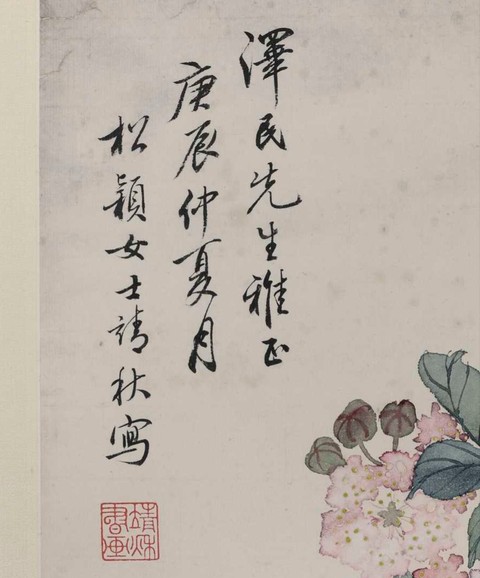 澤民先生雅正
庚辰仲夏月
松穎女士靖秋寫
靖秌
書画